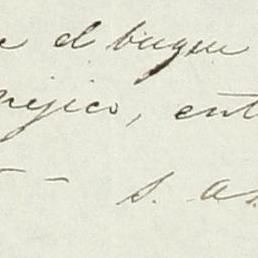 e el buque
mejico, ent
s. as